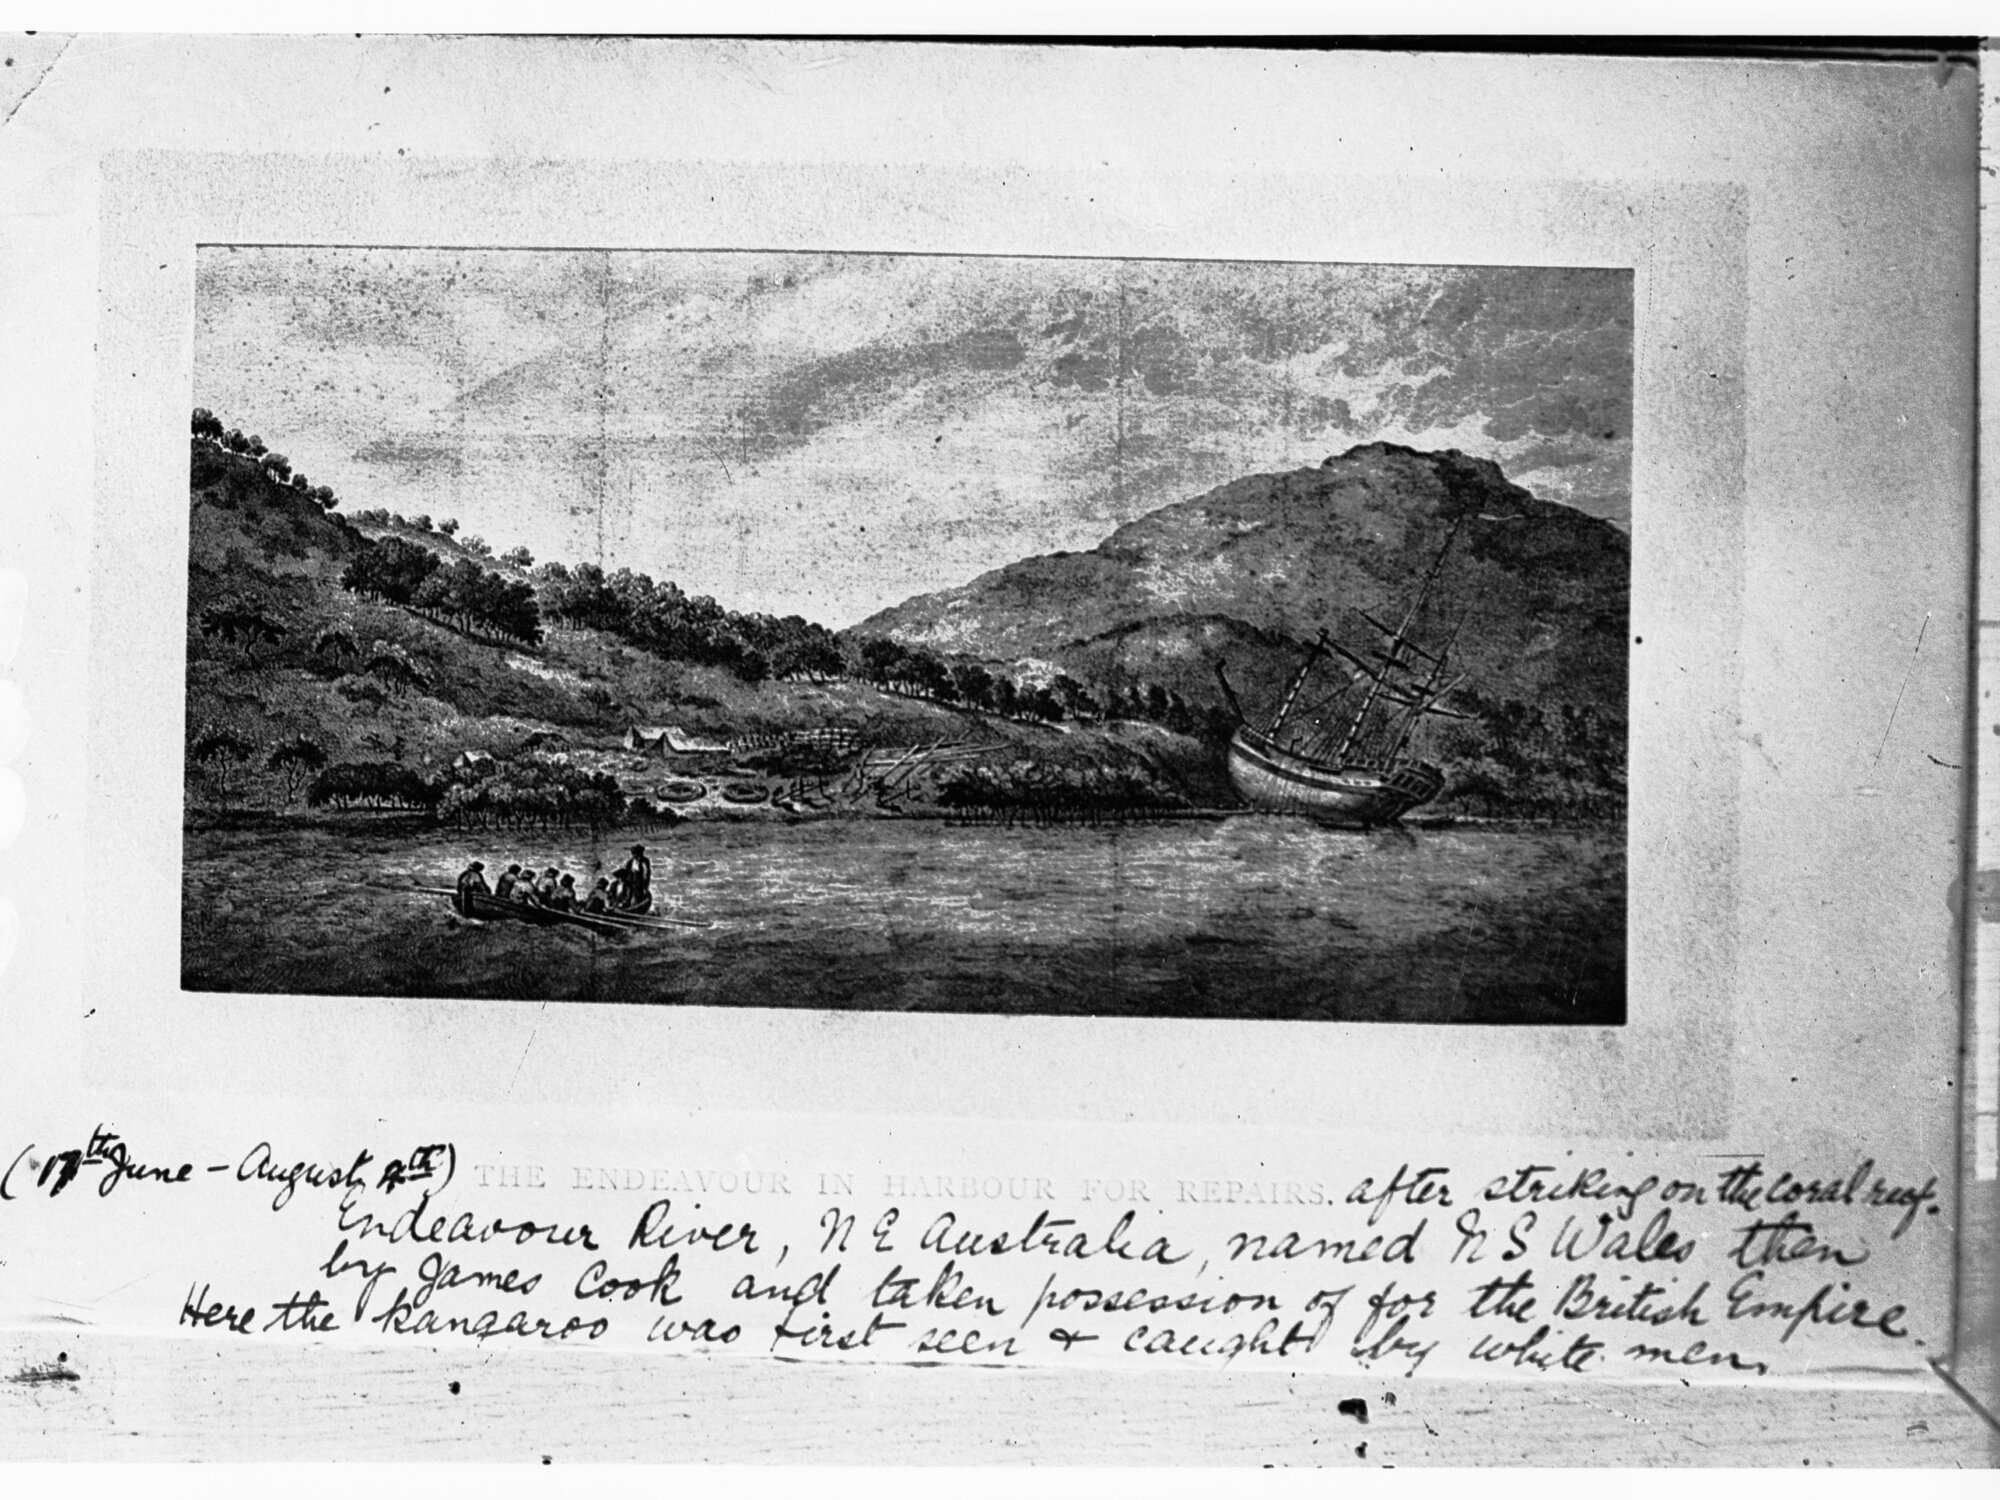 (17th June - August 4th) THE ENDEAVOUR IN HARBOUR FOR REPAIRS. after striking on the coral reef.
Endeavour River, N E Australia, named N S Wales then
by James Cook and taken possession of for the British Empire.
Here the kangaroo was first seen & caught by white men.